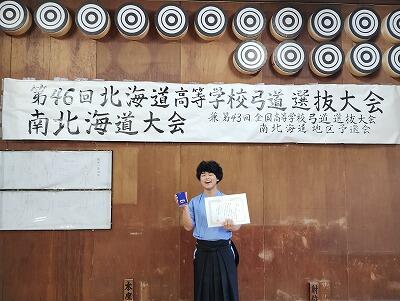 第46回北海道高等学校弓道選抜大会
南北海道大会
兼 第43回全国高等学校弓道選抜大会
南北海道地区予選会
本座
射位